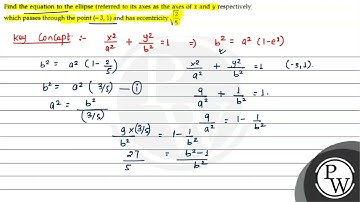 Find the equation to the ellipse (referred to its axes as the axes of x and y respectively)
which passes through the point (−3, 1) and has eccentricity √(2/5).
Key Concept :- x²/a² + y²/b² = 1 ⇒ b² = a² (1-e²)
b² = a² (1- 2/5)
b² = a² (3/5) — ①
a² = b²/(3/5)
x²/a² + y²/b² = 1 (-3,1).
9/a² + 1/b² = 1.
9/a² = 1 - 1/b²
9×(3/5)/b² = 1 - 1/b²
27/5 = b²-1/b²
PW